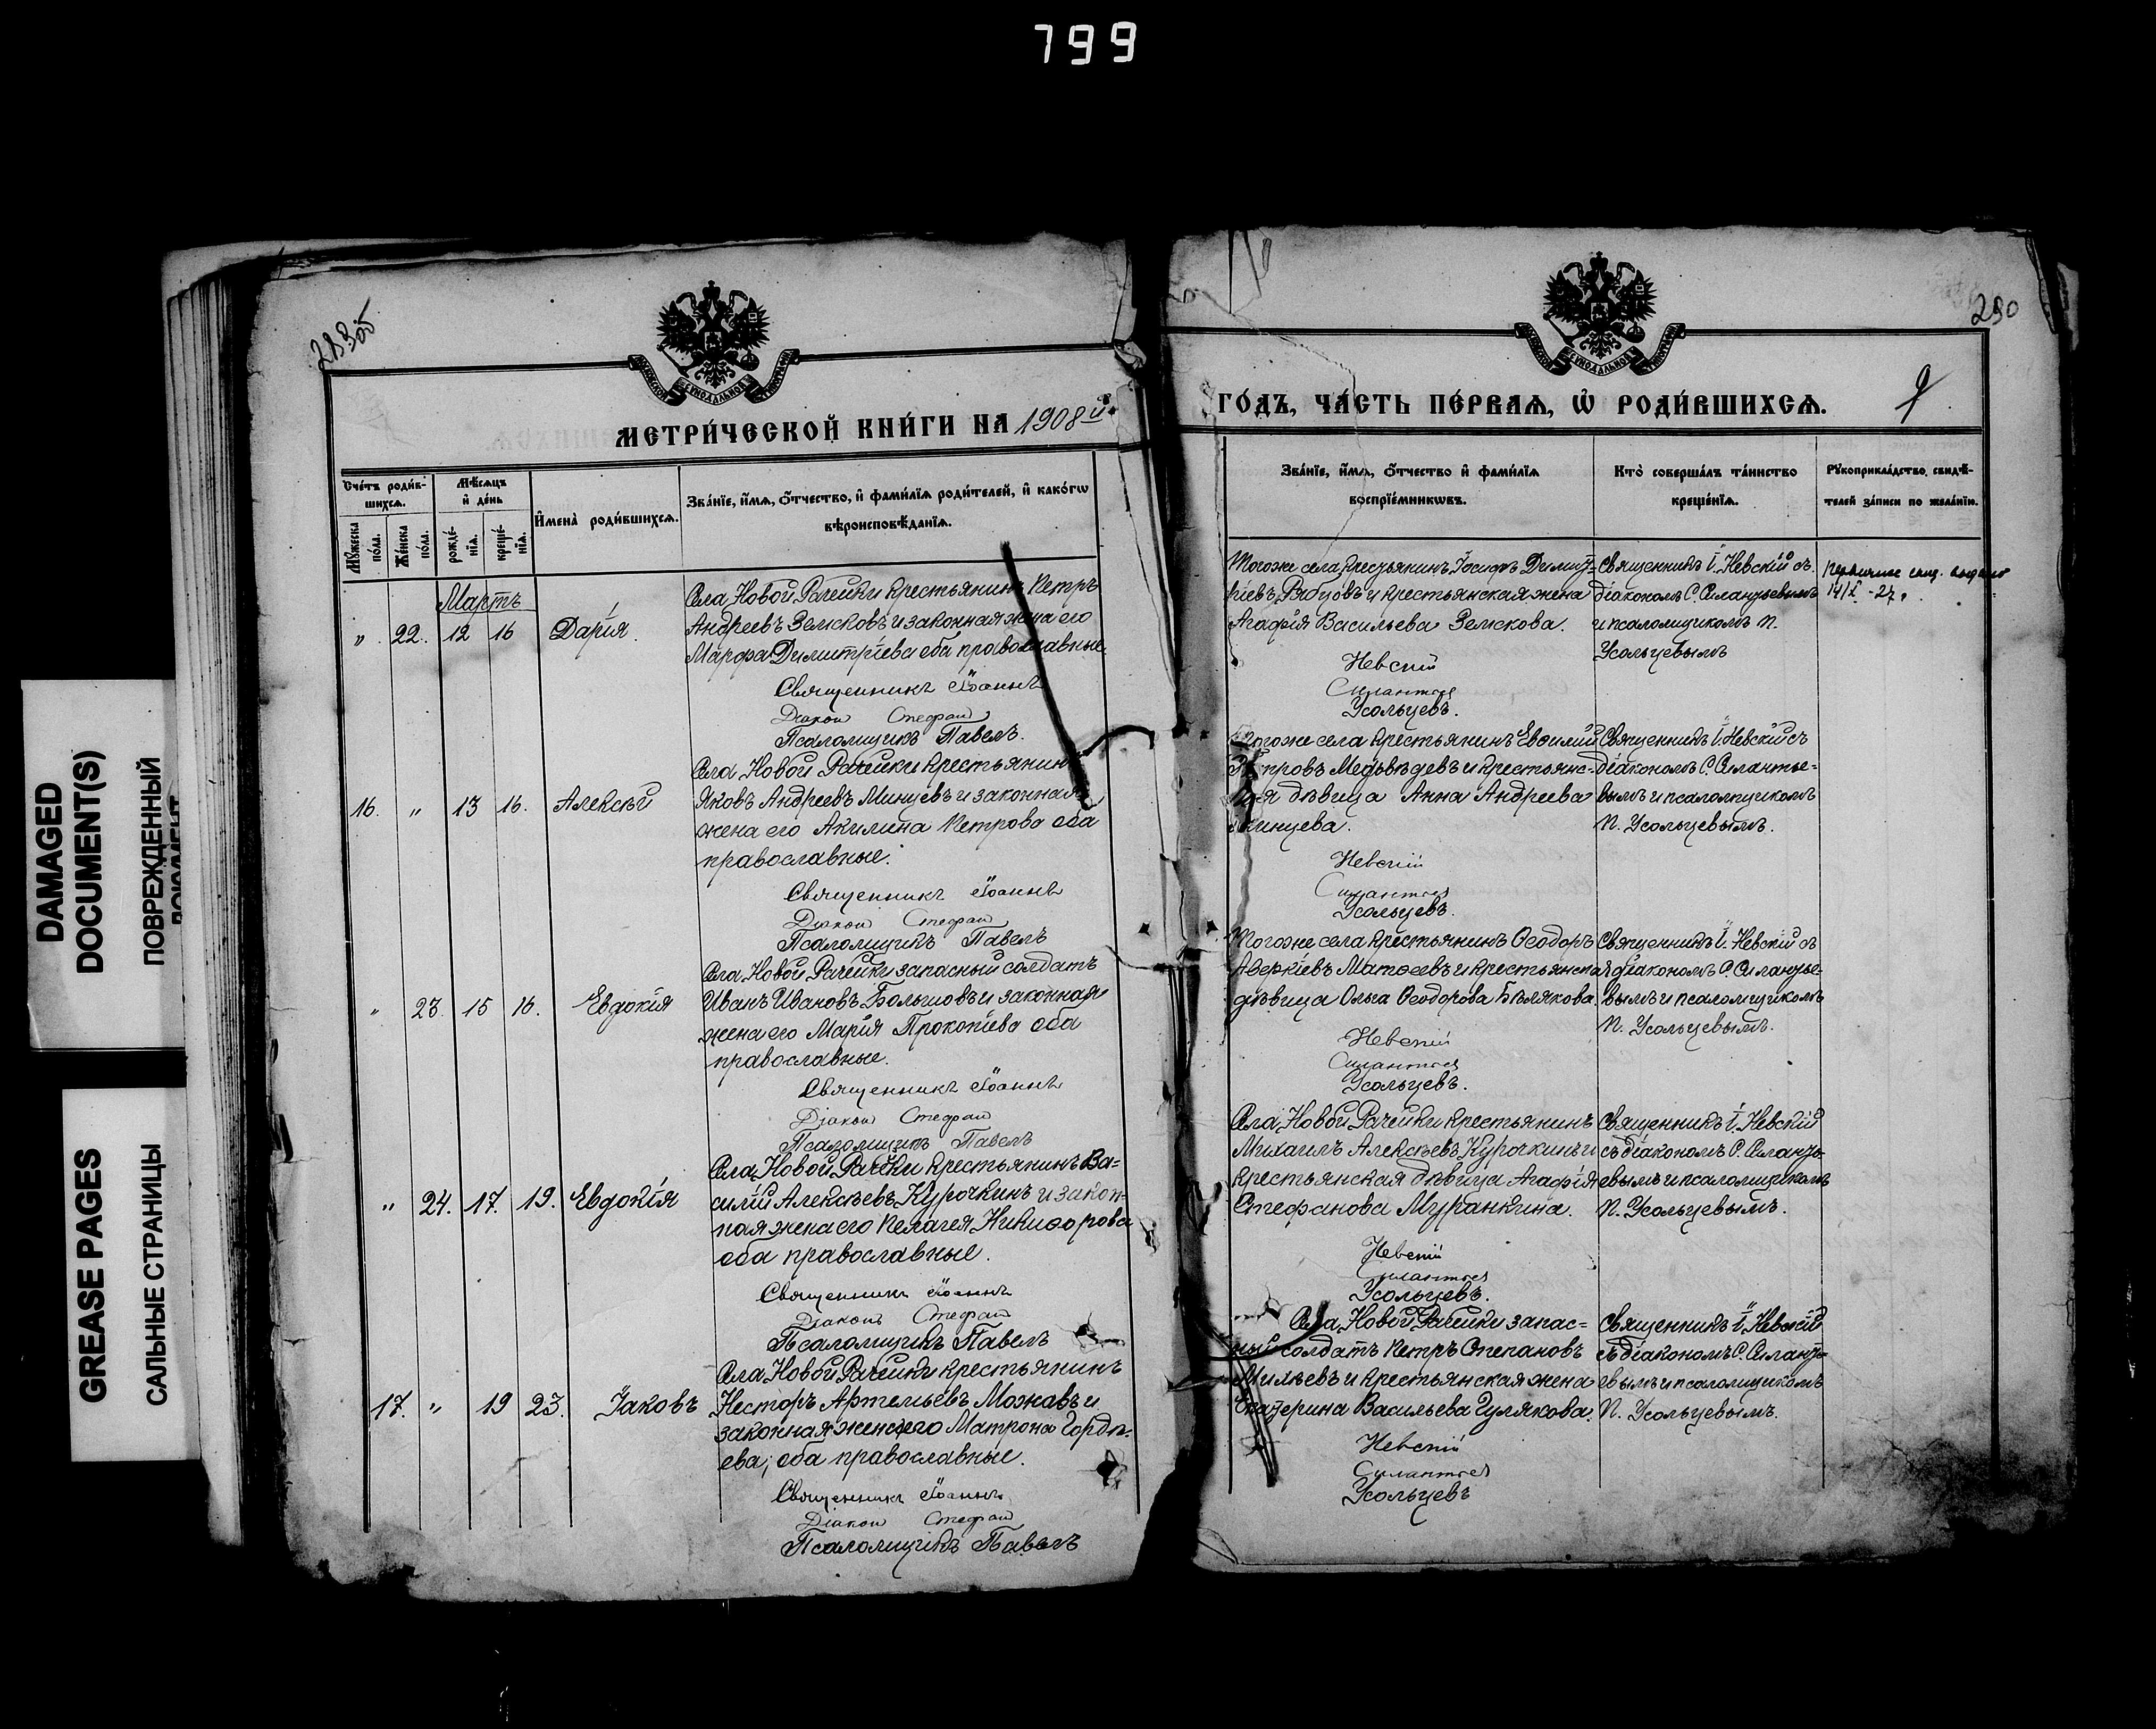 799
DAMAGED
DOCUMENT(S)
ПОВРЕЖДЕННЫЙ
GREASE PAGES
САЛЬНЫЕ СТРАНИЦЫ
290
9
МЕТРИ́ЧЕСКОЙ КНИ́ГИ НА 1908й
ГО́ДЪ, ЧА́СТЬ ПЕ́РВАѦ, Ѡ҆ РОДИ́ВШИХСѦ.
Счéтъ роди́в-
шихсѧ.
Мꙋжеска
по́ла.
Же́нска
по́ла.
Мѣ́сѧцъ
и҆ де́нь
рожде́-
нїѧ.
креще́-
нїѧ.
И҆мена̀ роди́вшихсѧ.
Зва́нїе, и҆́мѧ, ѻ҆́тчество, и҆ фами́лїѧ роди́телей, и҆ како́гѡ
вѣроисповѣ́данїѧ.
Зва́нїе, и҆́мѧ, ѻ҆́тчество и҆ фами́лїѧ
воспрїе́мникѡвъ.
Кто̀ соверша́лъ та́инство
креще́нїѧ.
Рꙋкоприкла́дство, свидѣ́-
телей за́писи по жела́нїю.
Мартъ
" 22. 12 16 Дарія.
Села Новой Рачейки крестьянинъ Петръ
Андреевъ Земсковъ и законная жена его
Марфа Димитріева оба православные.
Священникъ Іоаннъ
Діаконъ Стефан
Псаломщикъ Павелъ.
Тогоже села крестьянинъ Іосифъ Димит-
ріевъ Рябцовъ и крестьянская жена
Агафія Васильева Земскова.
Невскій
Силантьев
Усольцевъ.
Священникъ І. Невскій съ
діакономъ С. Силантьевымъ
и псаломщикомъ П.
Усольцевымъ
16. " 13 16. Алексѣй
Села Новой Рачейки крестьянинъ
Яковъ Андреевъ Минцевъ и законная
жена его Акилина Петрова оба
православные.
Священникъ Іоаннъ
Діакон Стефан
Псаломщикъ Павелъ
Тогоже села крестьянинъ Евфимій
Петровъ Медвѣдевъ и крестьянс-
кая дѣвица Анна Андреева
Минцева.
Невскій
Силантьев
Усольцевъ.
Священникъ І. Невскій съ
діакономъ С. Силантье-
вымъ и псаломщикомъ
П. Усольцевымъ.
" 23. 15 16. Евдокія
Села Новой Рачейки запасный солдатъ
Иванъ Ивановъ Большовъ и законная
жена его Марія Прокопіева оба
православные.
Священникъ Іоаннъ
Діакон Стефан
Псаломщикъ Павелъ
Тогоже села крестьянинъ Ѳеодоръ
Аверкіевъ Матвеевъ и крестьянская
дѣвица Ольга Ѳеодорова Бѣлякова
Невскій
Силантьев
Усольцевъ.
Священникъ І. Невскій съ
діакономъ С. Силантье-
вымъ и псаломщикомъ
П. Усольцевымъ.
" 24. 17. 19. Евдокія
Села Новой Рачейки крестьянинъ Ва=
силій Алексѣевъ Курочкинъ и закон-
ная жена его Пелагея Никифорова
оба православные.
Священникъ Іоаннъ
Діаконъ Стефан
Псаломщикъ Павелъ
Села Новой Рачейки крестьянинъ
Михаилъ Алексѣевъ Курочкинъ и
крестьянская дѣвица Агафія
Стефанова Муранкина.
Невскій
Силантьев
Усольцевъ.
Священникъ І. Невскій
съ діакономъ С. Силанть-
евымъ и псаломщикомъ
П. Усольцевымъ.
17. " 19 23. Іаковъ
Села Новой Рачейки крестьянинъ
Несторъ АртемьевъМожаевъ и
законная жена его Матрона Гордѣ-
ева, оба православные.
Священникъ Іоаннъ
Діакон Стефан
Псаломщикъ Павелъ
Села Новой Рачейки запас=
ный солдатъ Петръ Степановъ
Михѣевъ и крестьянская жена
Екатерина Васильева Гулякова.
Невскій
Силантьев
Усольцевъ
Священникъ І. Невскій
съ діакономъ С. Силанть-
евымъ и псаломщикомъ
П. Усольцевымъ.